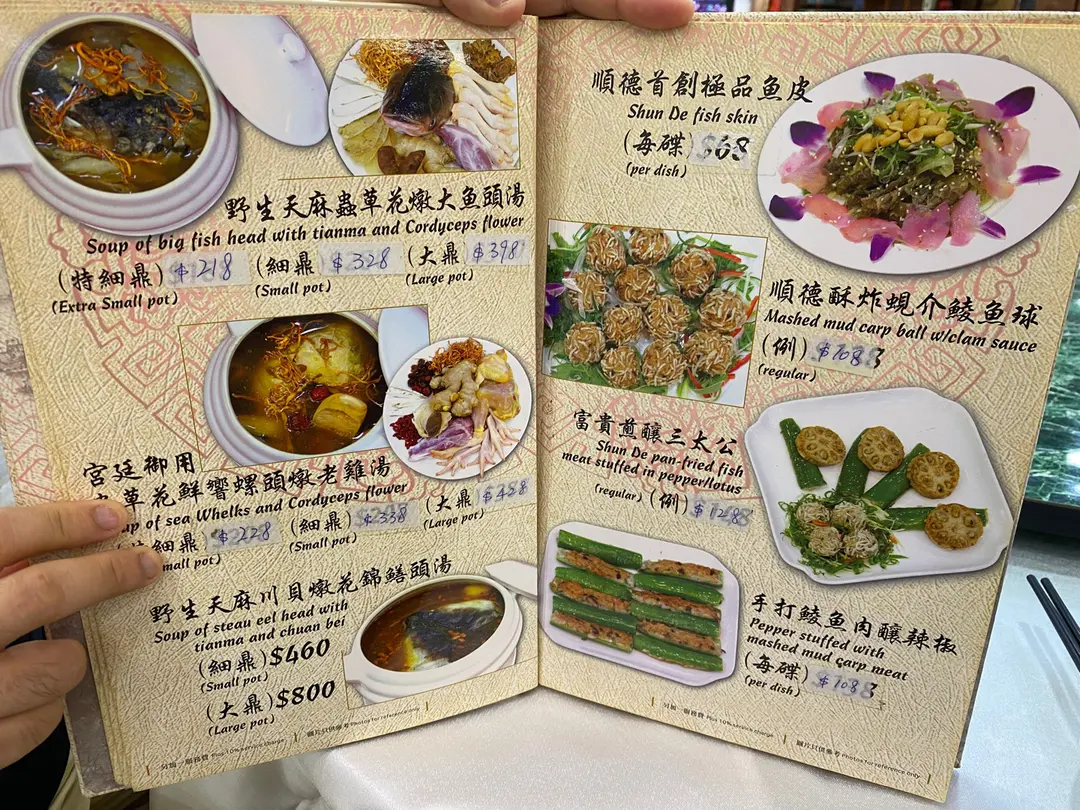 野生天麻蟲草花燉大魚頭湯
Soup of big fish head with tianma and Cordyceps flower
(特細鼎) $218 (細鼎) $328 (大鼎) $398
(Extra Small pot) (Small pot) (Large pot)
宮廷御用
草花鮮響螺頭燉老雞湯
up of sea Whelks and Cordyceps flower
細鼎) $228 (細鼎) $338 (大鼎) $428
mall pot) (Small pot) (Large pot)
野生天麻川貝燉花錦鱔頭湯
Soup of steau eel head with
tianma and chuan bei
(細鼎) $460
(Small pot)
(大鼎) $800
(Large pot)
另加一服務費 Plus 10% service charge | 圖片只供參考 Photos for reference only
順德首創極品魚皮
Shun De fish skin
(每碟) $68
(per dish)
順德酥炸蜆介鯪魚球
Mashed mud carp ball w/clam sauce
(例) $108
(regular)
富貴煎釀三太公
Shun De pan-fried fish
meat stuffed in pepper/lotus
(regular) (例) $128
手打鯪魚肉釀辣椒
Pepper stuffed with
mashed mud carp meat
(每碟) $108
(per dish)
另加一服務費 Plus 10% service charge | 圖片只供參考 Photos for reference only